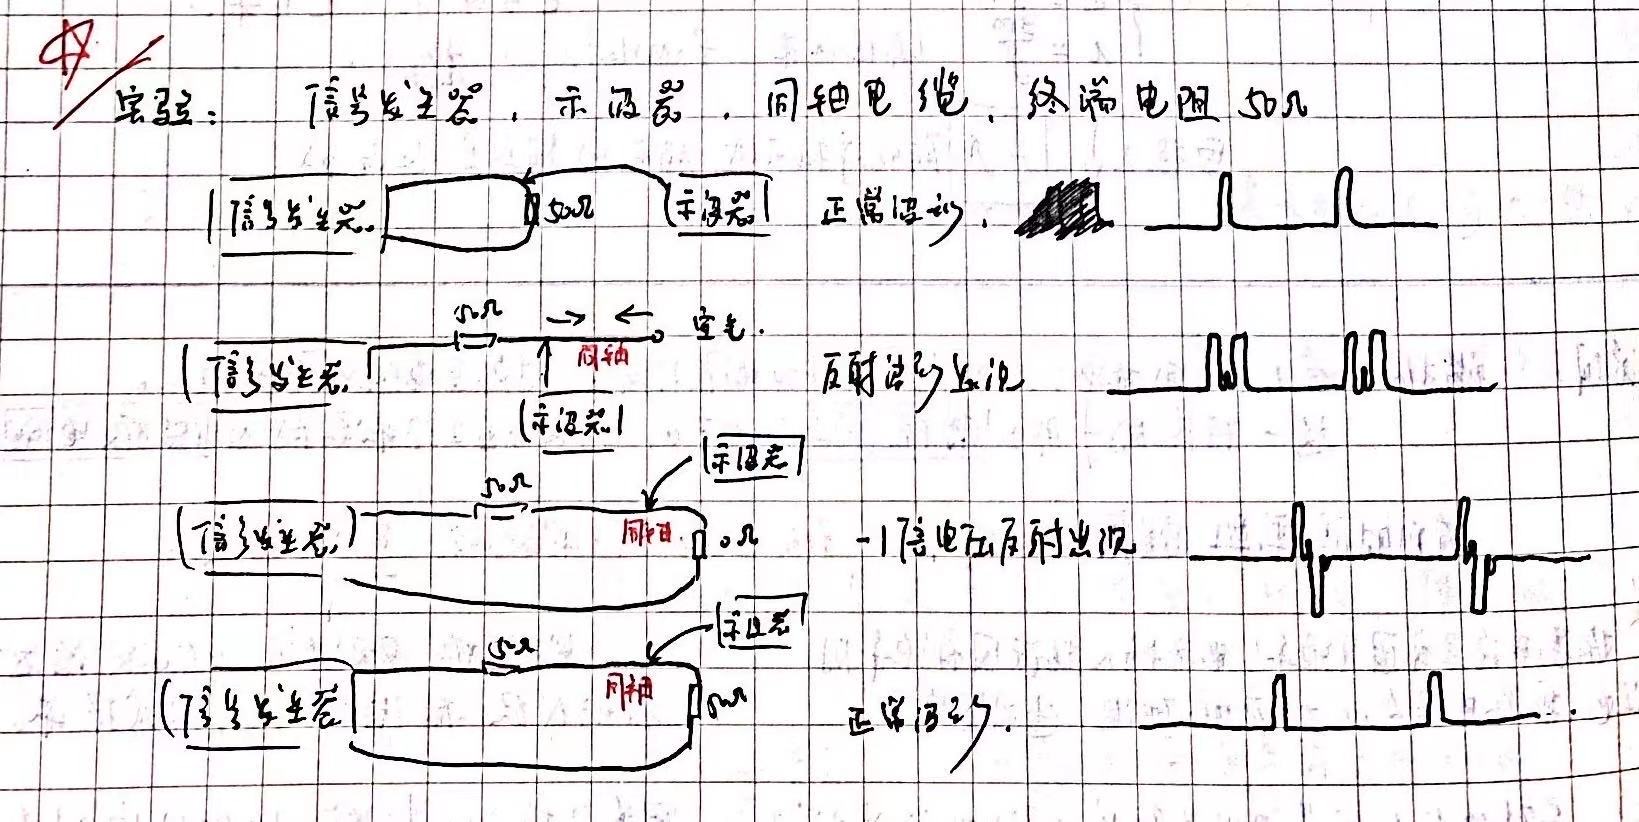 实验： 信号发生器，示波器，同轴电缆，终端电阻 50Ω
信号发生器 50Ω 示波器 正常波形．
50Ω 空气．
信号发生器 同轴 反射波形出现
示波器
示波器
50Ω
信号发生器 同轴 0Ω -1倍电压反射出现
示波器
50Ω
信号发生器 同轴 50Ω 正常波形．